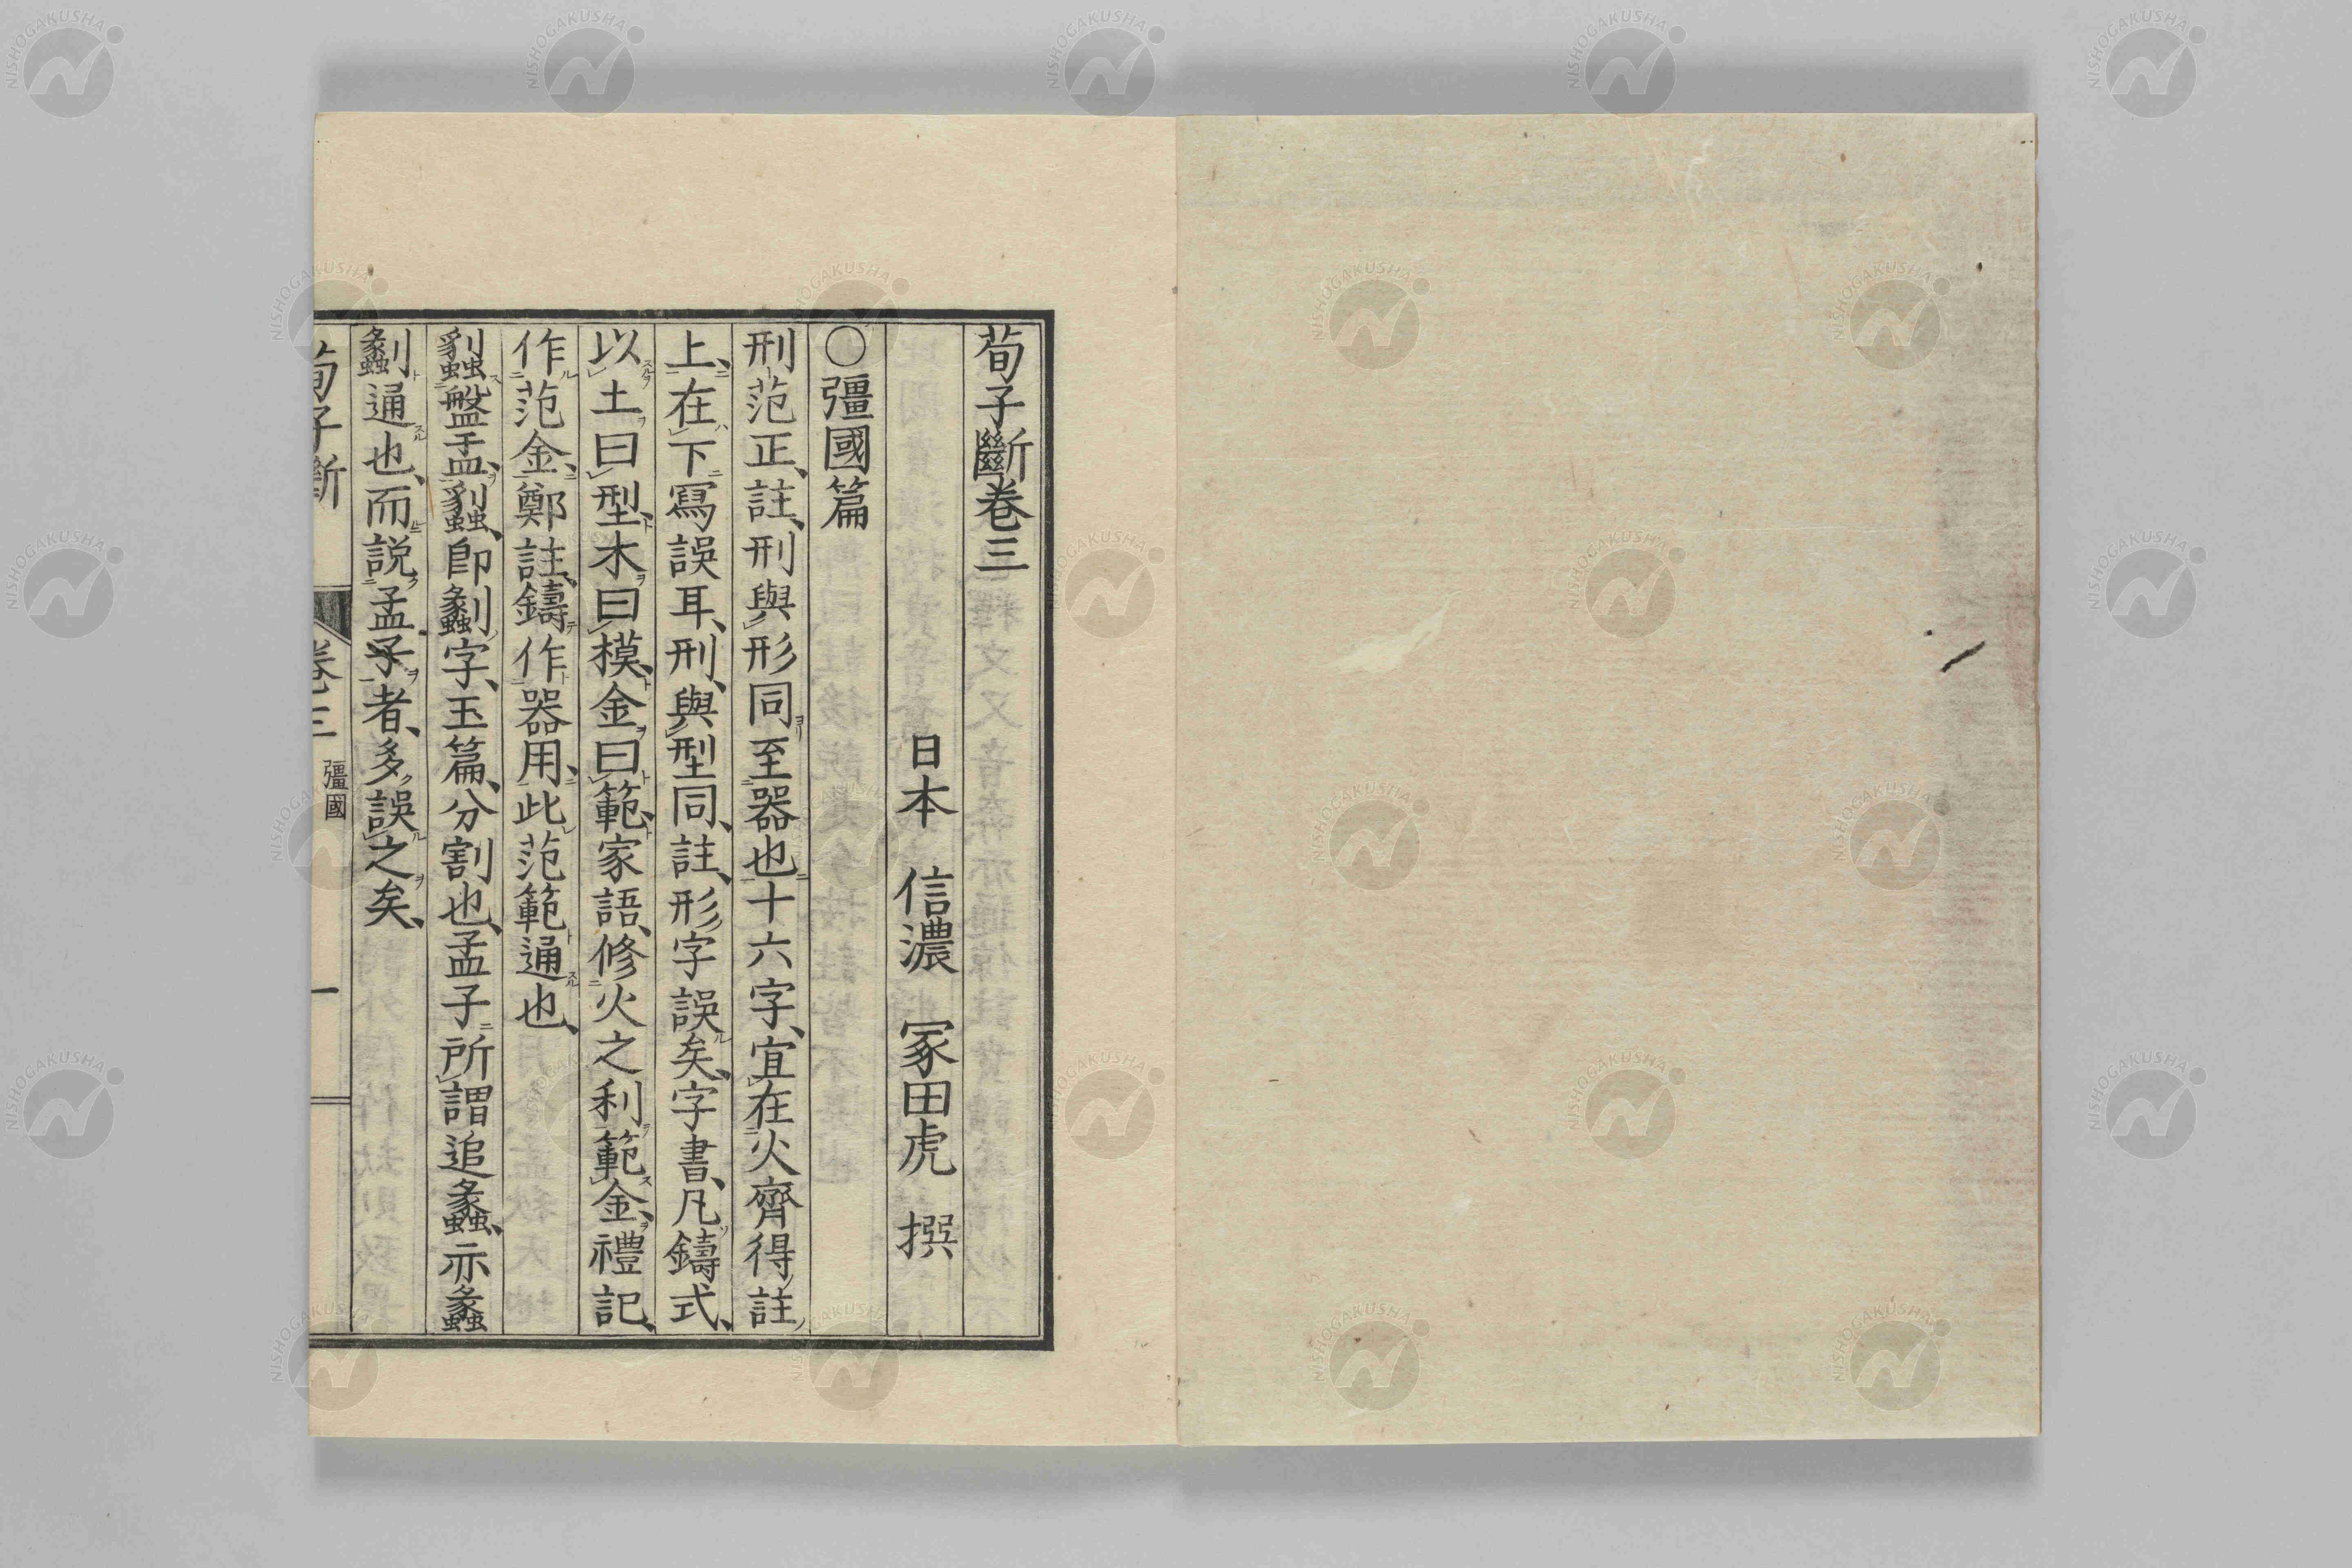 荀子斷卷三
日本 信濃 冢田虎 撰
○彊國篇
刑范正、註、刑與形同至器也十六字、宜在火齊得註
上、在下寫誤耳、刑、與型同、註、形字誤矣、字書、凡鑄式、
以土曰型、木曰模、金曰範、家語、修火之利範金、禮記、
作范金、鄭註、鑄作器用、此范範通也、
劙盤盂、劙、卽劙字、玉篇、分割也、孟子所謂追蠡、亦蠡
劙通也、而説孟子者、多誤之矣、
荀子斷 卷三 彊國 一
NISHOGAKUSHA